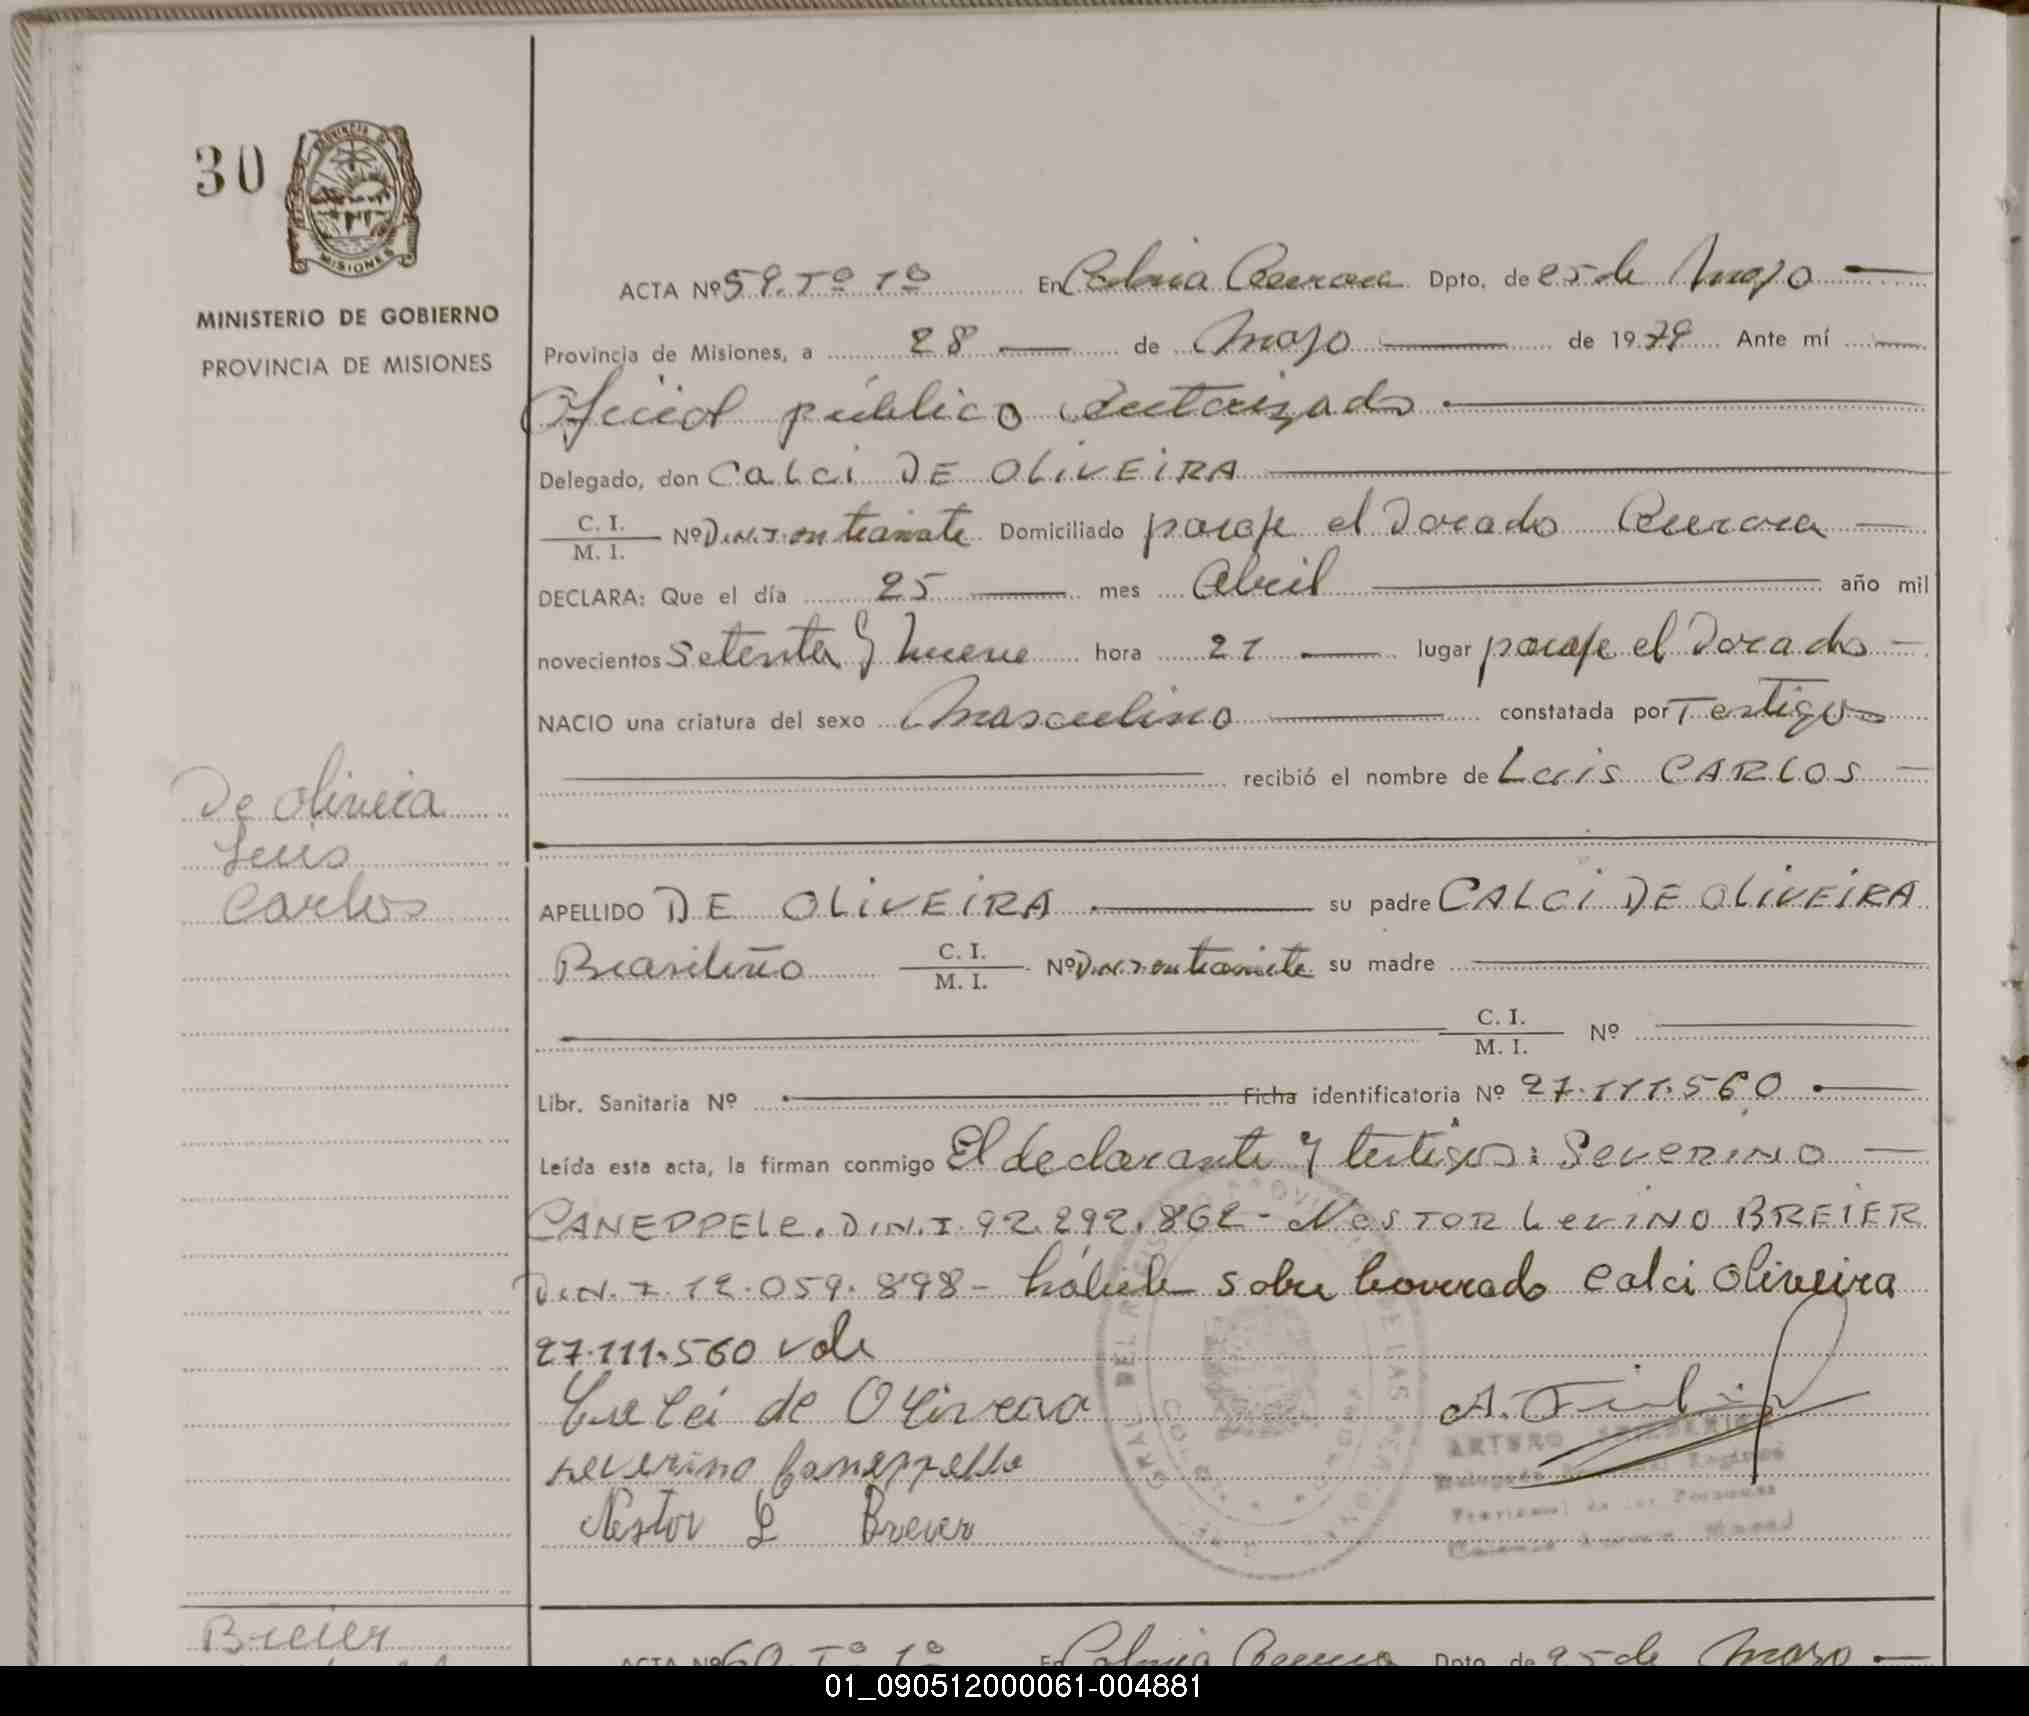 30
PROVINCIA DE
MISIONES
MINISTERIO DE GOBIERNO
PROVINCIA DE MISIONES
ACTA Nº 59. Tº 1º En Colonia Aurora Dpto. de 25 de Mayo
Provincia de Misiones, a 28 de Mayo de 1979 Ante mí
Oficial público Autorizado
Delegado, don CALCI DE OLIVEIRA
C. I.
M. I. Nº D.N.I. en tramite Domiciliado paraje el Dorado Aurora
DECLARA: Que el día 25 mes Abril año mil
novecientos Setenta y Nueve hora 21 lugar paraje el Dorado
NACIO una criatura del sexo Masculino constatada por Testigos
recibió el nombre de Luis CARLOS
De Oliveira
Luis
Carlos
APELLIDO DE OLIVEIRA su padre CALCI DE OLIVEIRA
Brasileño C. I.
M. I. Nº D.N.I. en tramite su madre
C. I.
M. I. Nº
Libr. Sanitaria Nº Ficha identificatoria Nº 27.111.560
Leída esta acta, la firman conmigo El declarante y testigos: SEVERINO
CANEPPELE. D.N.I. 92.292.862 - NESTOR LEVINO BREIER
D.N.I. 12.059.898 - hábiles sobre borrado Calci Oliveira
27.111.560 vale
Calci de Oliveira
severino Caneppelle
Nestor L Breier
A.
ARTURO
Delegado
Provincial de las Personas
Colonia Aurora
Breier
ACTA Nº 60. Tº 1º En Colonia Aurora Dpto. de 25 de Mayo
01_090512000061-004881